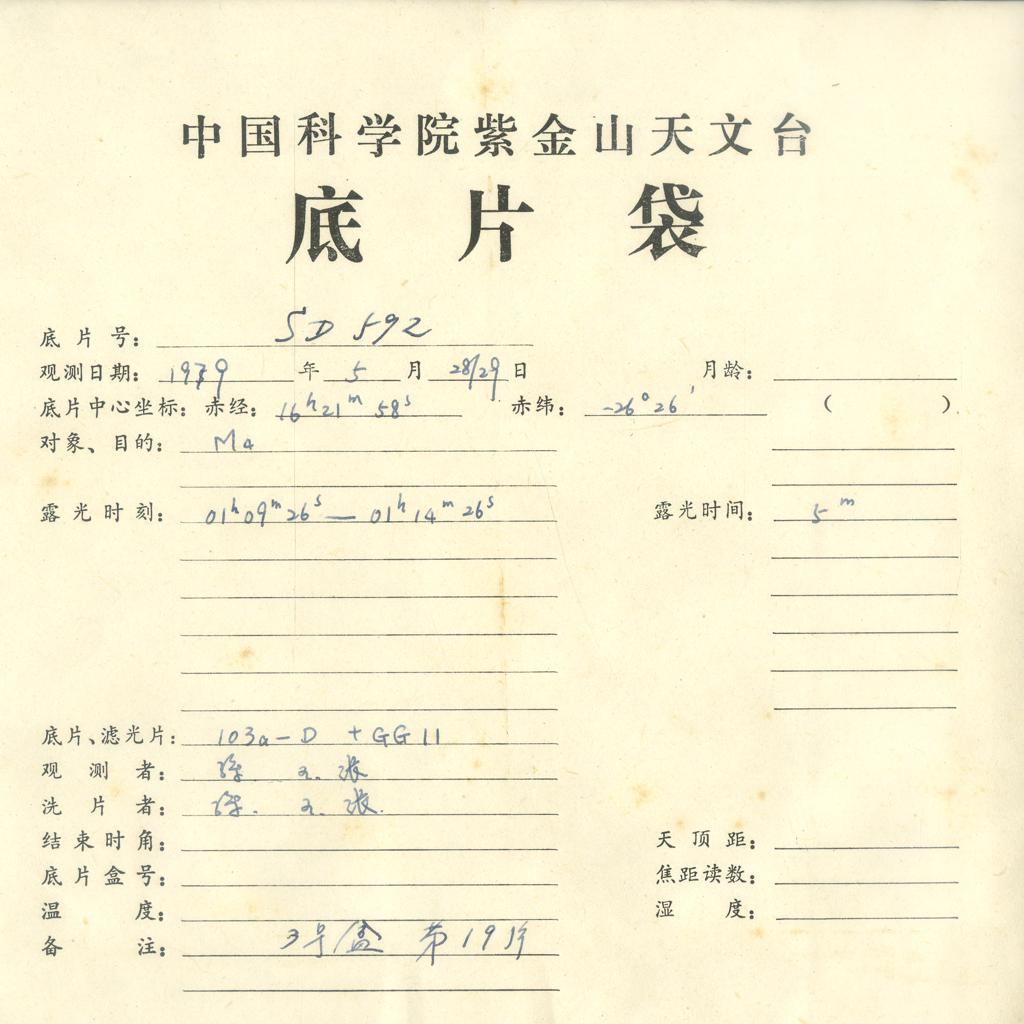 中国科学院紫金山天文台
底片袋
底片号: SD 592
观测日期: 1979年5月28/29日 月龄:
底片中心坐标: 赤经: 16h21m58s 赤纬: -26°26′ ( )
对象、目的: M4
露光时刻: 01h09m26s — 01h14m26s 露光时间: 5m
底片、滤光片: 103a-D +GG11
观测者: 张
洗片者: 张.
结束时角: 天顶距:
底片盒号: 焦距读数:
温度: 湿度:
备注: 3号盒 第19片